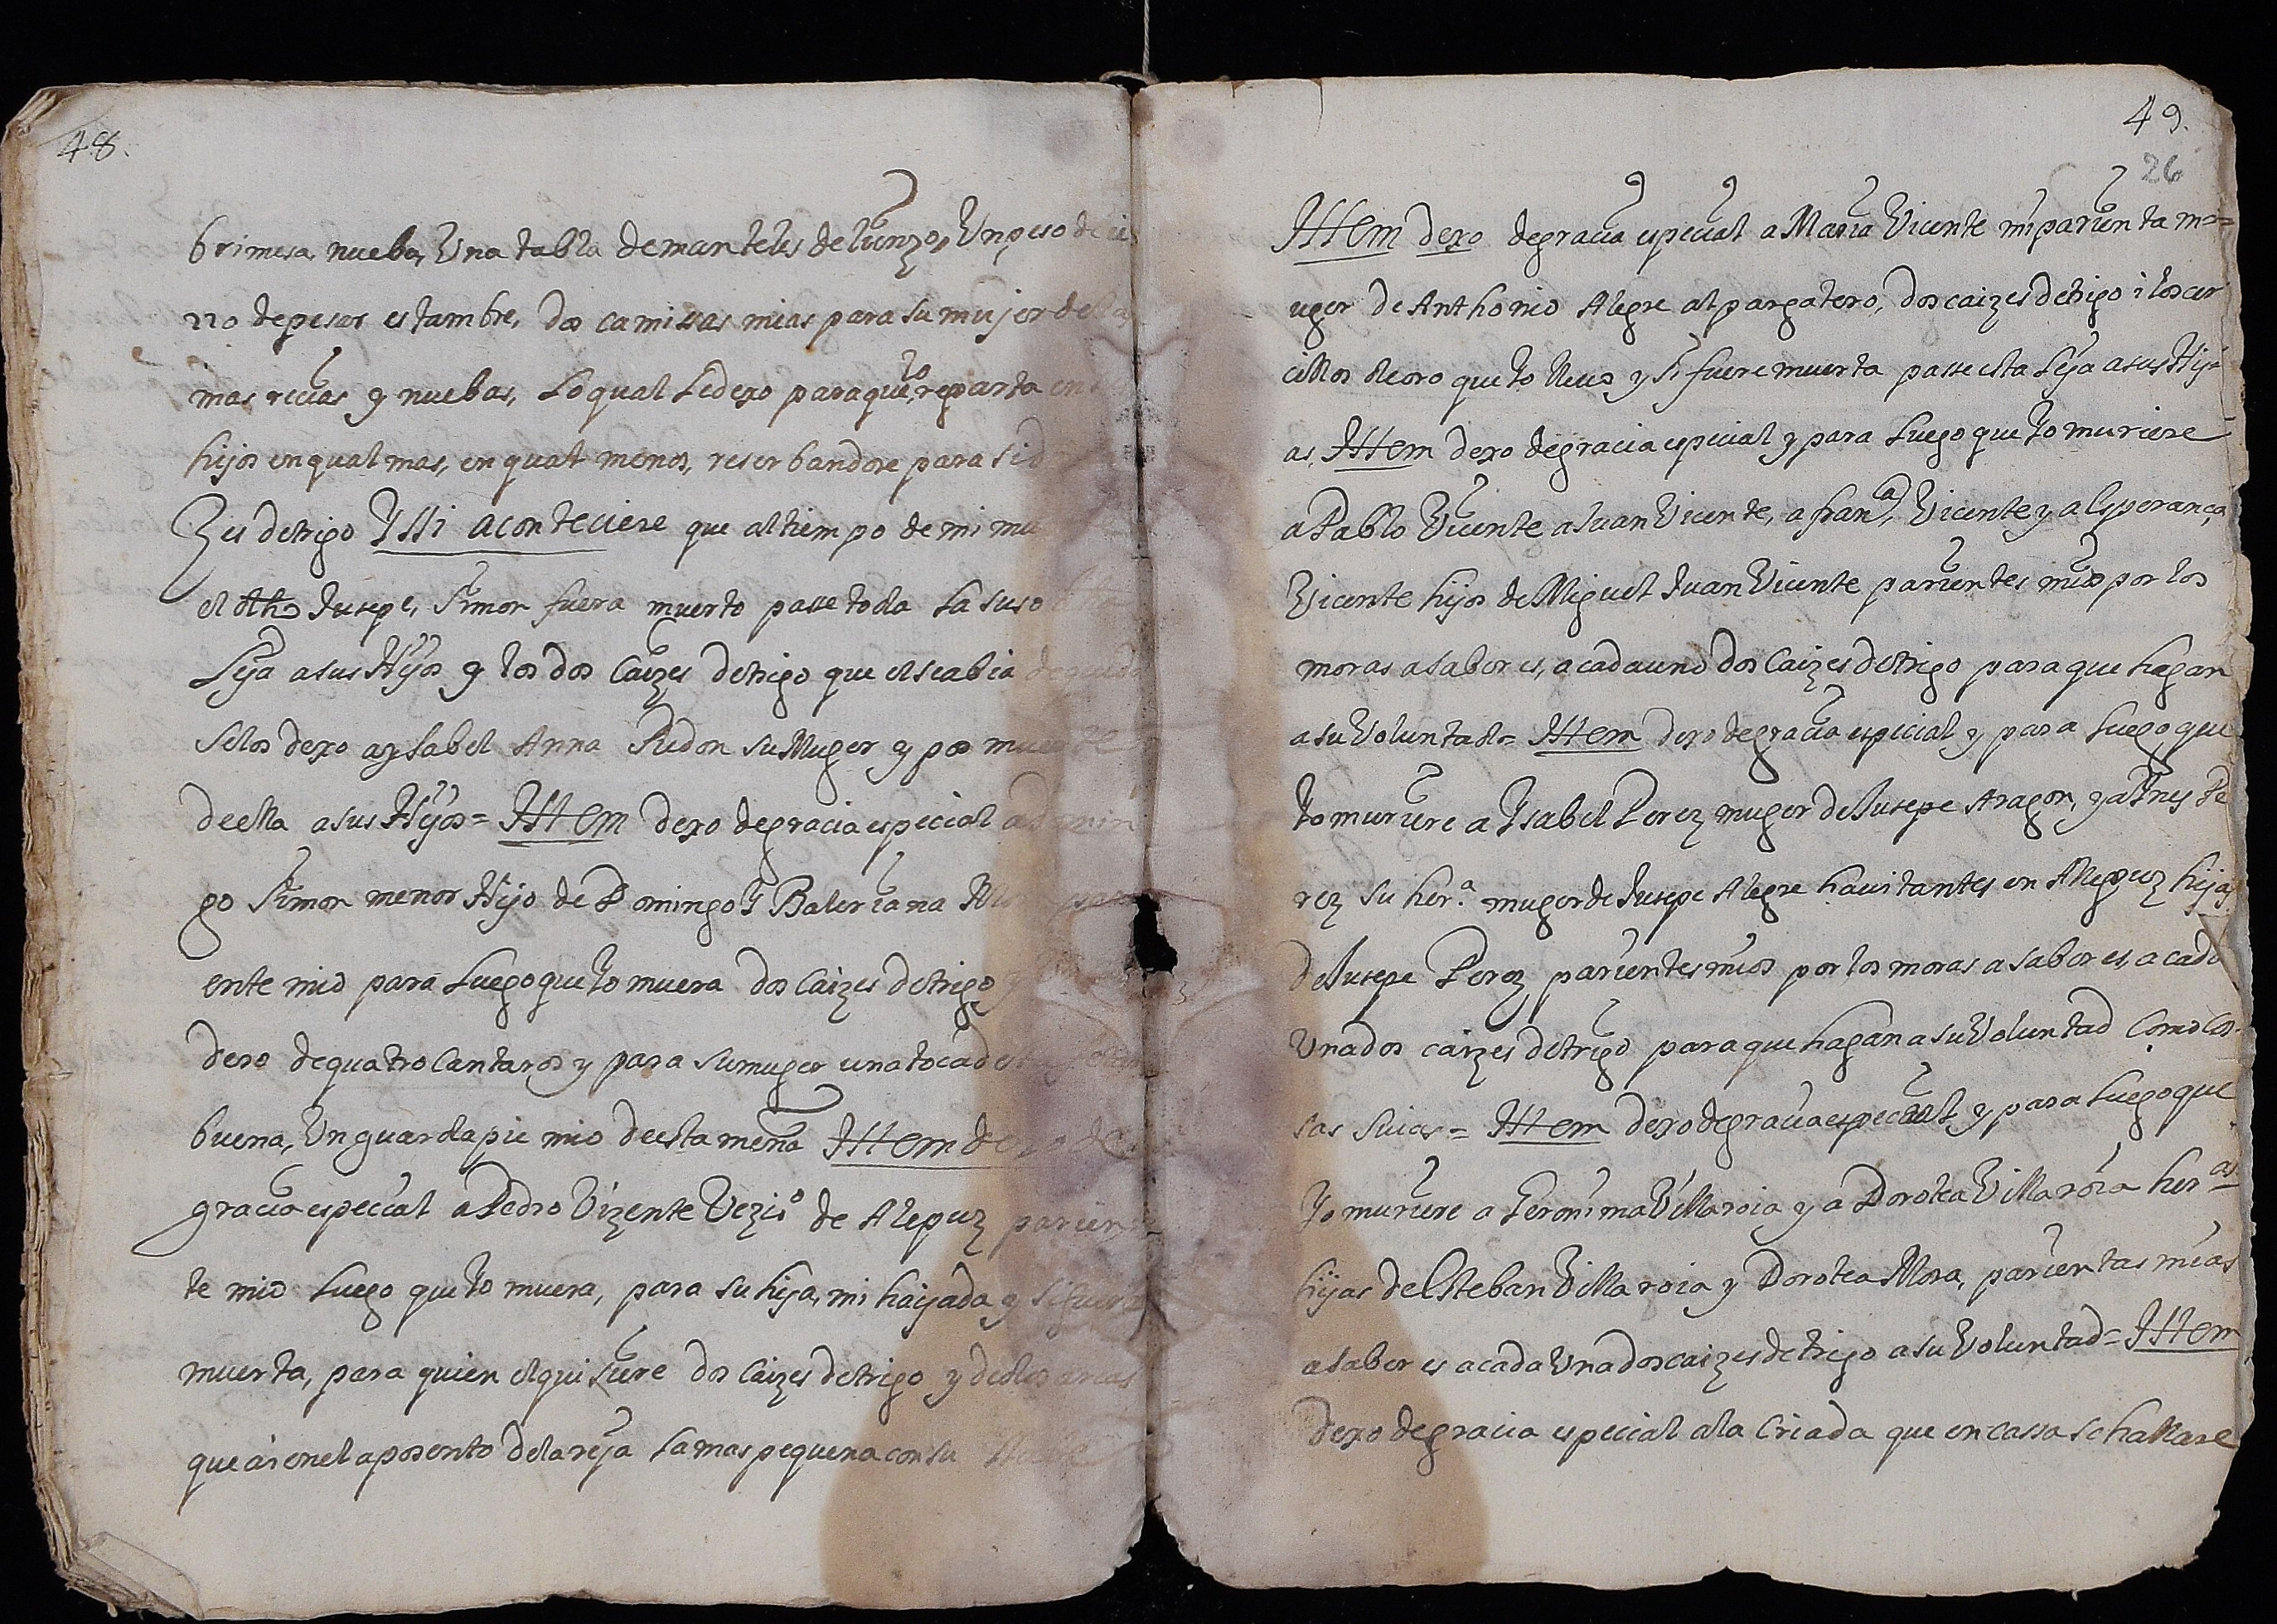 48.
brimesa nueba, Una tabla de manteles de lienzo, Un peso de
rro de pesar estambre, dos camissas mias para su mujer de
mas recias y nuebas, Lo qual le dexo para que lo reparta en
hijos en qual mas, en qual menos, reserbandose para si
zes de trigo Y ssi aconteciere que al tiempo de mi
el dho Jusepe, Simon fuera muerto passe toda la suso
Leja a sus Hijos y los dos Caizes de trigo que el se abia de
se los dexo a ysabel Anna Pudon su Muger y por muerte
de ella a sus Hijos = Ittem dexo de gracia especial a Domin
go Simon menor Hijo de Domingo Y Baleriana
ente mio para Luego que Yo muera dos Caizes de trigo
dero de quatro Cantaros y para su muger una toca de
buena, Un guardapie mio de estameña Ittem dexo de
gracia especial a Pedro Vizente Vezio de Alepuz parien
te mio Luego que Yo muera, para su hija, mi haijada y si fuera
muerta, para quien el quisiere dos Caizes de trigo y de las arcas
que ai en el aposento de la reja La mas pequena con su
49.
26
Ittem dexo de gracia especial a Maria Vicente mi parienta m
uger de Anthonio Alegre alpargatero, dos caizes de trigo i los cer
cillos de oro que Yo llevo y si fuere muerta passe esta Leja a sus Hij
as, Ittem dexo de gracia especial y para Luego que Yo muriere
a Pablo Vicente a Juan Vicente, a fran.ca Vicente y a Esperança
Vicente hijos de Miguel Juan Vicente parientes mios por los
moras a saber es, a cada uno dos Caizes de trigo para que hagan
a su Voluntad = Ittem dexo de gracia especial y para Luego que
Yo muriere a Ysabel Perez muger de Jusepe Aragon, y a Ines Pe
rez su her.a muger de Jusepe Alegre havitantes en Alepuz hijas
de Jusepe Perez parientes mios por los moras a saber es, a cada
Una dos caizes de trigo para que hagan a su Voluntad Como Co
sas suias = Ittem dexo de gracia especial y para Luego que
Yo muriere a Geronima Villaroia y a Dorotea Villaroia her.as
hijas de Esteban Villaroia y Dorotea Mora, parientas mias
a saber es a cada Una dos caizes de trigo a su Voluntad = Ittem
dexo de gracia especial a la Criada que en cassa se hallare